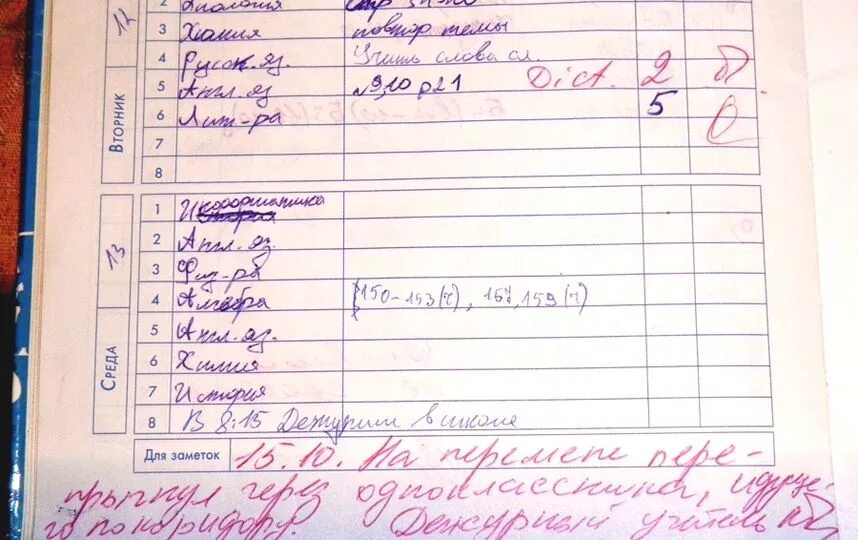 12
ВТОРНИК
2 Биология стр
3 Химия повтор темы
4 Русск. яз. Учить слова
5 Англ. яз №9,10 р21 Dict. 2
6 Лит-ра 5
7
8
13
СРЕДА
1 Информатика
2 Англ. яз.
3 Физ-ра
4 Алгебра 150-153(г), 157, 159(г)
5 Англ. яз.
6 Химия
7 История
8 В 8:15 Дежурим в школе
Для заметок 15.10. На перемене пере-
прыгнул через одноклассника, идуще-
го по коридору. Дежурный учитель